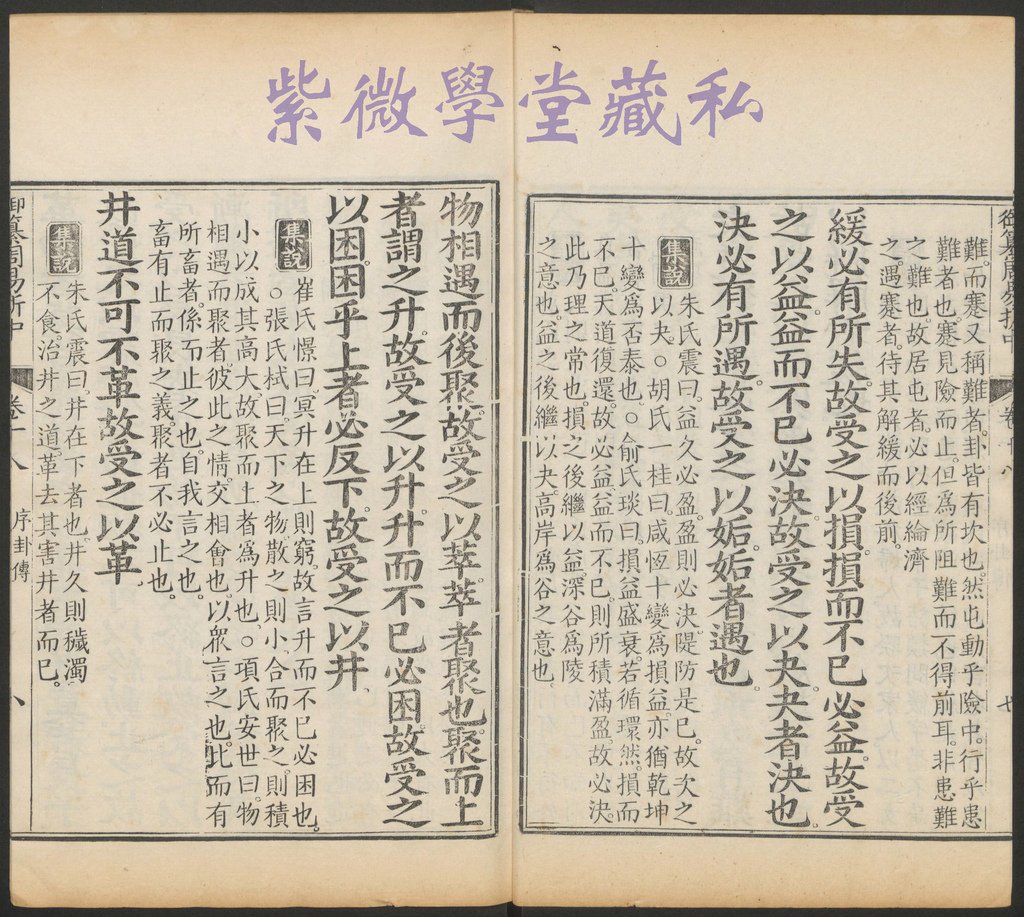 紫微學堂藏私
難而蹇又稱難者卦皆有坎也然屯動乎險中行乎患
難者也蹇見險而止但為所阻難而不得前耳非患難
之難也故居屯者必以經綸濟
之遇蹇者待其解緩而後前
緩必有所失故受之以損損而不已必益故受
之以益益而不已必決故受之以夬夬者決也
決必有所遇故受之以姤姤者遇也
集說
朱氏震曰益久必盈盈則必決隄防是已故次之
以夬○胡氏一桂曰咸恆十變為損益亦猶乾坤
十變為否泰也○俞氏琰曰損益盛衰若循環然損而
不已天道復還故必益益而不已則所積滿盈故必決
此乃理之常也損之後繼以益深谷為陵
之意也益之後繼以夬高岸為谷之意也
物相遇而後聚故受之以萃萃者聚也聚而上
者謂之升故受之以升升而不已必困故受之
以困困乎上者必反下故受之以井
集說
崔氏憬曰冥升在上則窮故言升而不已必困也
○張氏栻曰天下之物散之則小合而聚之則積
小以成其高大故聚而上者為升也○項氏安世曰物
相遇而聚者彼此之情交相會也以眾言之也比而有
所畜者係而止之也自我言之也
畜有止而聚之義聚者不必止也
井道不可不革故受之以革
集說
朱氏震曰井在下者也井久則穢濁
不食治井之道革去其害井者而已
卷一八
序卦傳
八